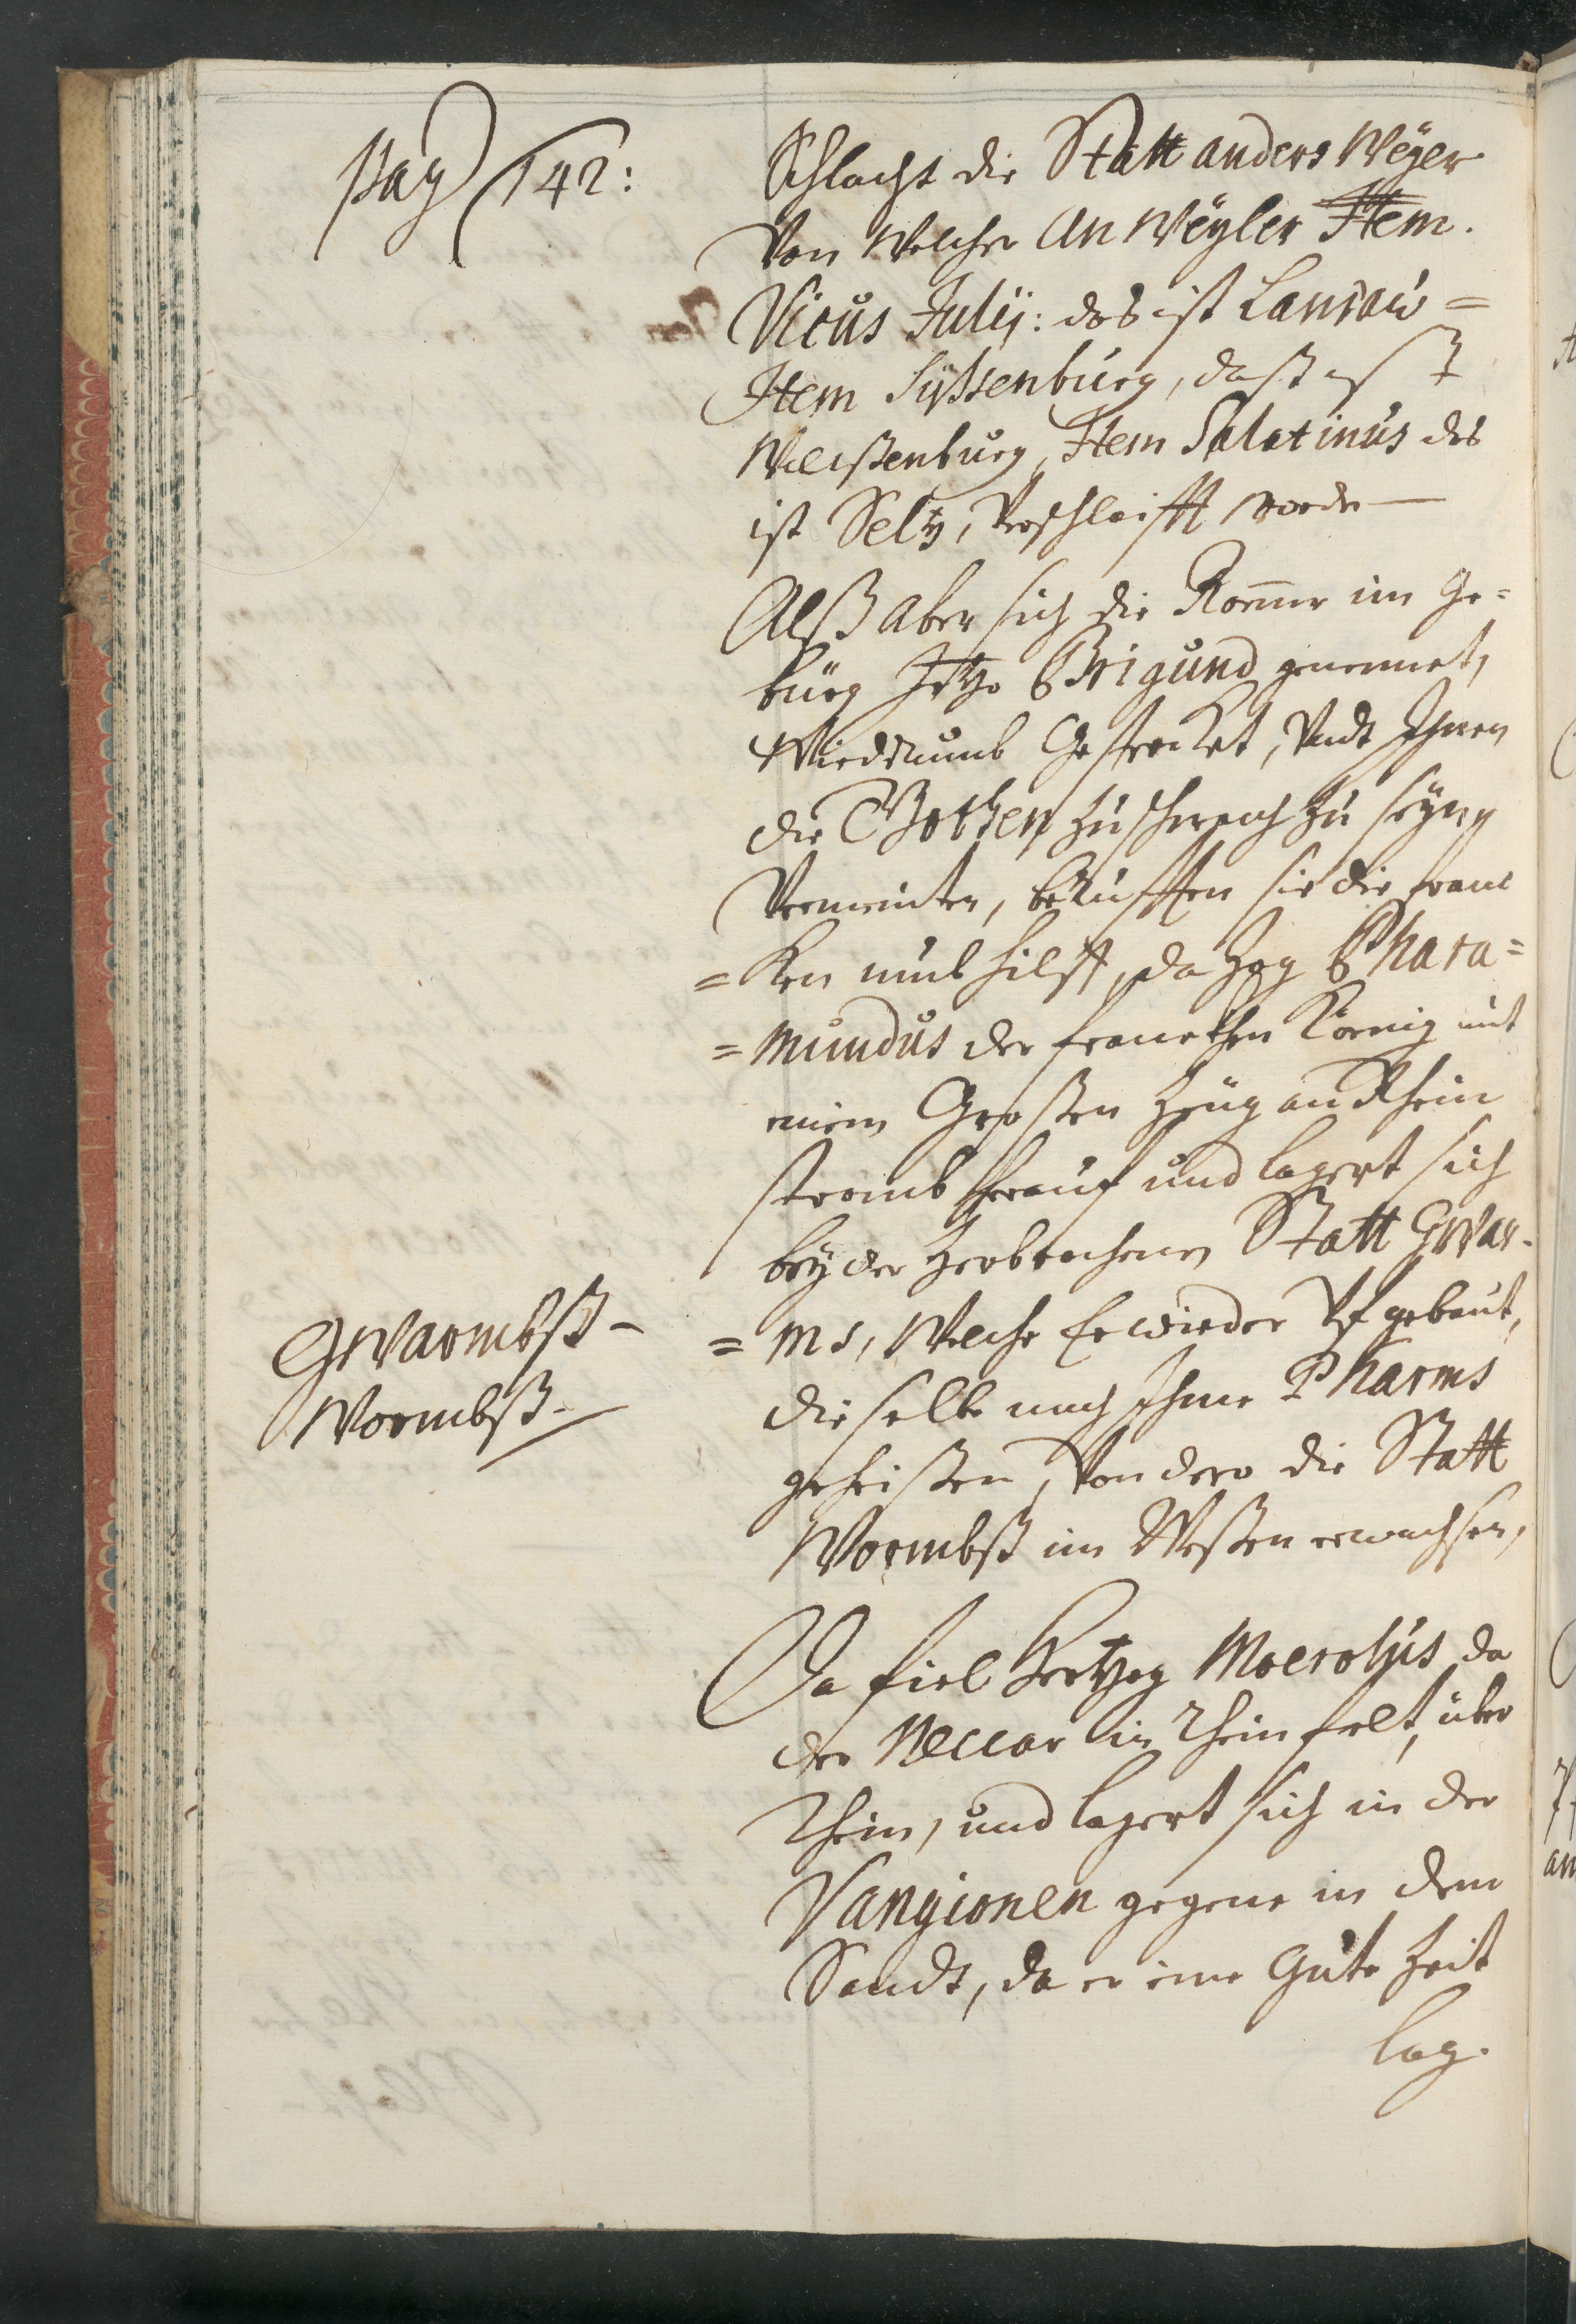 Pag 142:
Schlacht die Statt anders Weyer
Von Welcher AnWeyler Item.
Vicus Julij: das ist Landaw=
Item Syttenburg, daß ist
Weissenburg, Item Salatinus das
ist Seltz, Verschleifft worden
Alß Aber sich die Römer im Ge=
bürg Jetzo Brigund genennet,
Wiederumb Gestercket, Undt Ihnen
die Gothen zu schwach zu seyen
Vermeinten, berufften sie die Franc
=ken umb hilff, da Zog Phara=
=mundus der francken König mit
einem Grossen Zeüg am Rhein
stromb herauf und lagert sich
bey der Zerbrochenen Statt Gwar-
=ms, Welche Er wieder Uf gebaut,
dieselbe nach Ihme Pharms
geheissen, Von dero die Statt
Wormbß im Wessen erwachsen,
Gwarmbß-
Wormbß-
Da fiel Hertzog Moerolus da
der Neccar in Rhein felt, über
Rhein, und lagert sich in der
Vangionen gegene in dem
Sandt, da er eine Gute Zeit
lag.